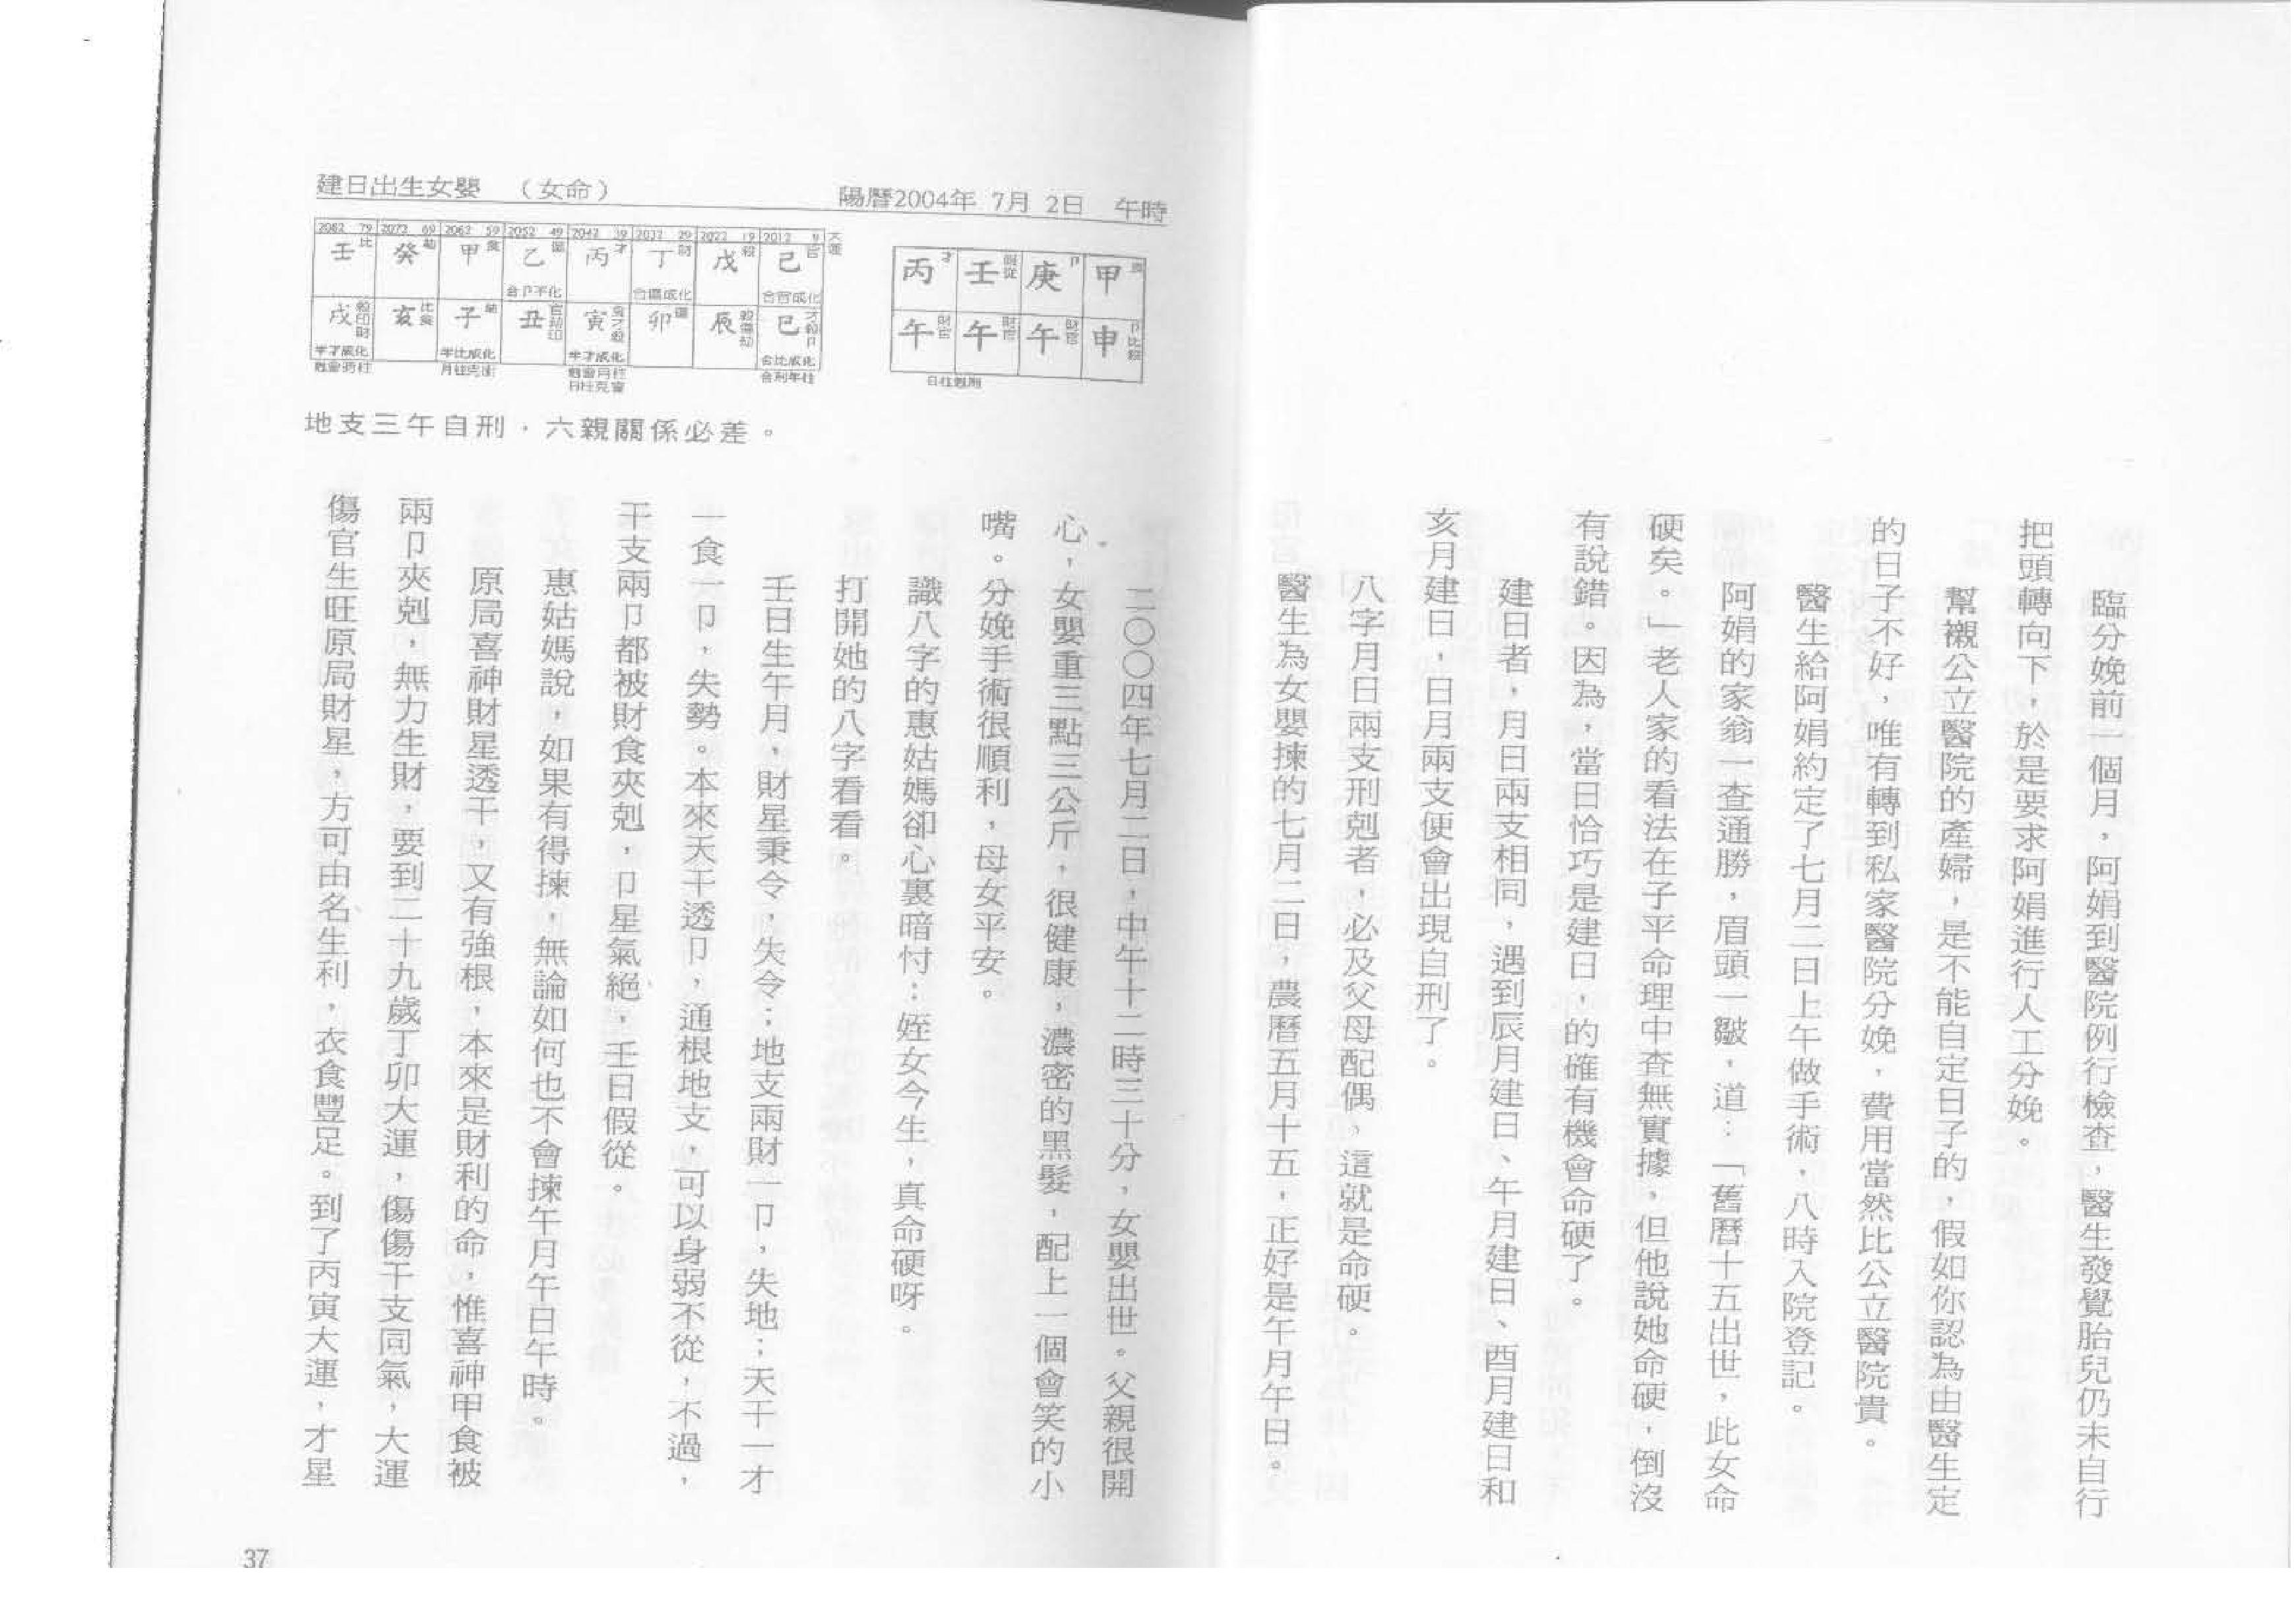 臨分娩前一個月，阿娟到醫院例行檢查，醫生發覺胎兒仍未自行
把頭轉向下，於是要求阿娟進行人工分娩。
幫襯公立醫院的產婦，是不能自定日子的，假如你認為由醫生定
的日子不好，唯有轉到私家醫院分娩，費用當然比公立醫院貴。
醫生給阿娟約定了七月二日上午做手術，八時入院登記。
阿娟的家翁一查通勝，眉頭一皺，道：「舊曆十五出世，此女命
硬矣。」老人家的看法在子平命理中查無實據，但他說她命硬，倒沒
有說錯。因為，當日恰巧是建日，的確有機會命硬了。
建日者，月日兩支相同，遇到辰月建日、午月建日、酉月建日和
亥月建日，日月兩支便會出現自刑了。
八字月日兩支刑剋者，必及父母配偶，這就是命硬。
醫生為女嬰揀的七月二日，農曆五月十五，正好是午月午日。
建日出生女嬰 （女命） 陽曆2004年 7月 2日 午時
丙才 壬假從 庚卩 甲食
午財官 午財官 午財官 申卩比殺
2082 79 2072 69 2062 59 2052 49 2042 39 2032 29 2022 19 2012 9 大運
壬比 癸劫 甲食 乙傷 丙才 丁財 戊殺 己官
合卩不化 合傷成化 合官成化
戌殺印財 亥比食 子劫 丑官劫印 寅食才殺 卯傷 辰殺傷劫 巳才殺卩
半才成化 半比成化 半才成化 合比成化
月柱克衝 日柱克會 合刑年柱
地支三午自刑，六親關係必差。
二〇〇四年七月二日，中午十二時三十分，女嬰出世。父親很開
心，女嬰重三點三公斤，很健康，濃密的黑髮，配上一個會笑的小
嘴。分娩手術很順利，母女平安。
識八字的惠姑媽卻心裏暗忖：姪女今生，真命硬呀。
打開她的八字看看。
壬日生午月，財星秉令，失令；地支兩財一卩，失地；天干一才
一食一卩，失勢。本來天干透卩，通根地支，可以身弱不從，不過，
干支兩卩都被財食夾剋，卩星氣絕，壬日假從。
惠姑媽說，如果有得揀，無論如何也不會揀午月午日午時。
原局喜神財星透干，又有強根，本來是財利的命，惟喜神甲食被
兩卩夾剋，無力生財，要到二十九歲丁卯大運，傷傷干支同氣，大運
傷官生旺原局財星，方可由名生利，衣食豐足。到了丙寅大運，才星
37